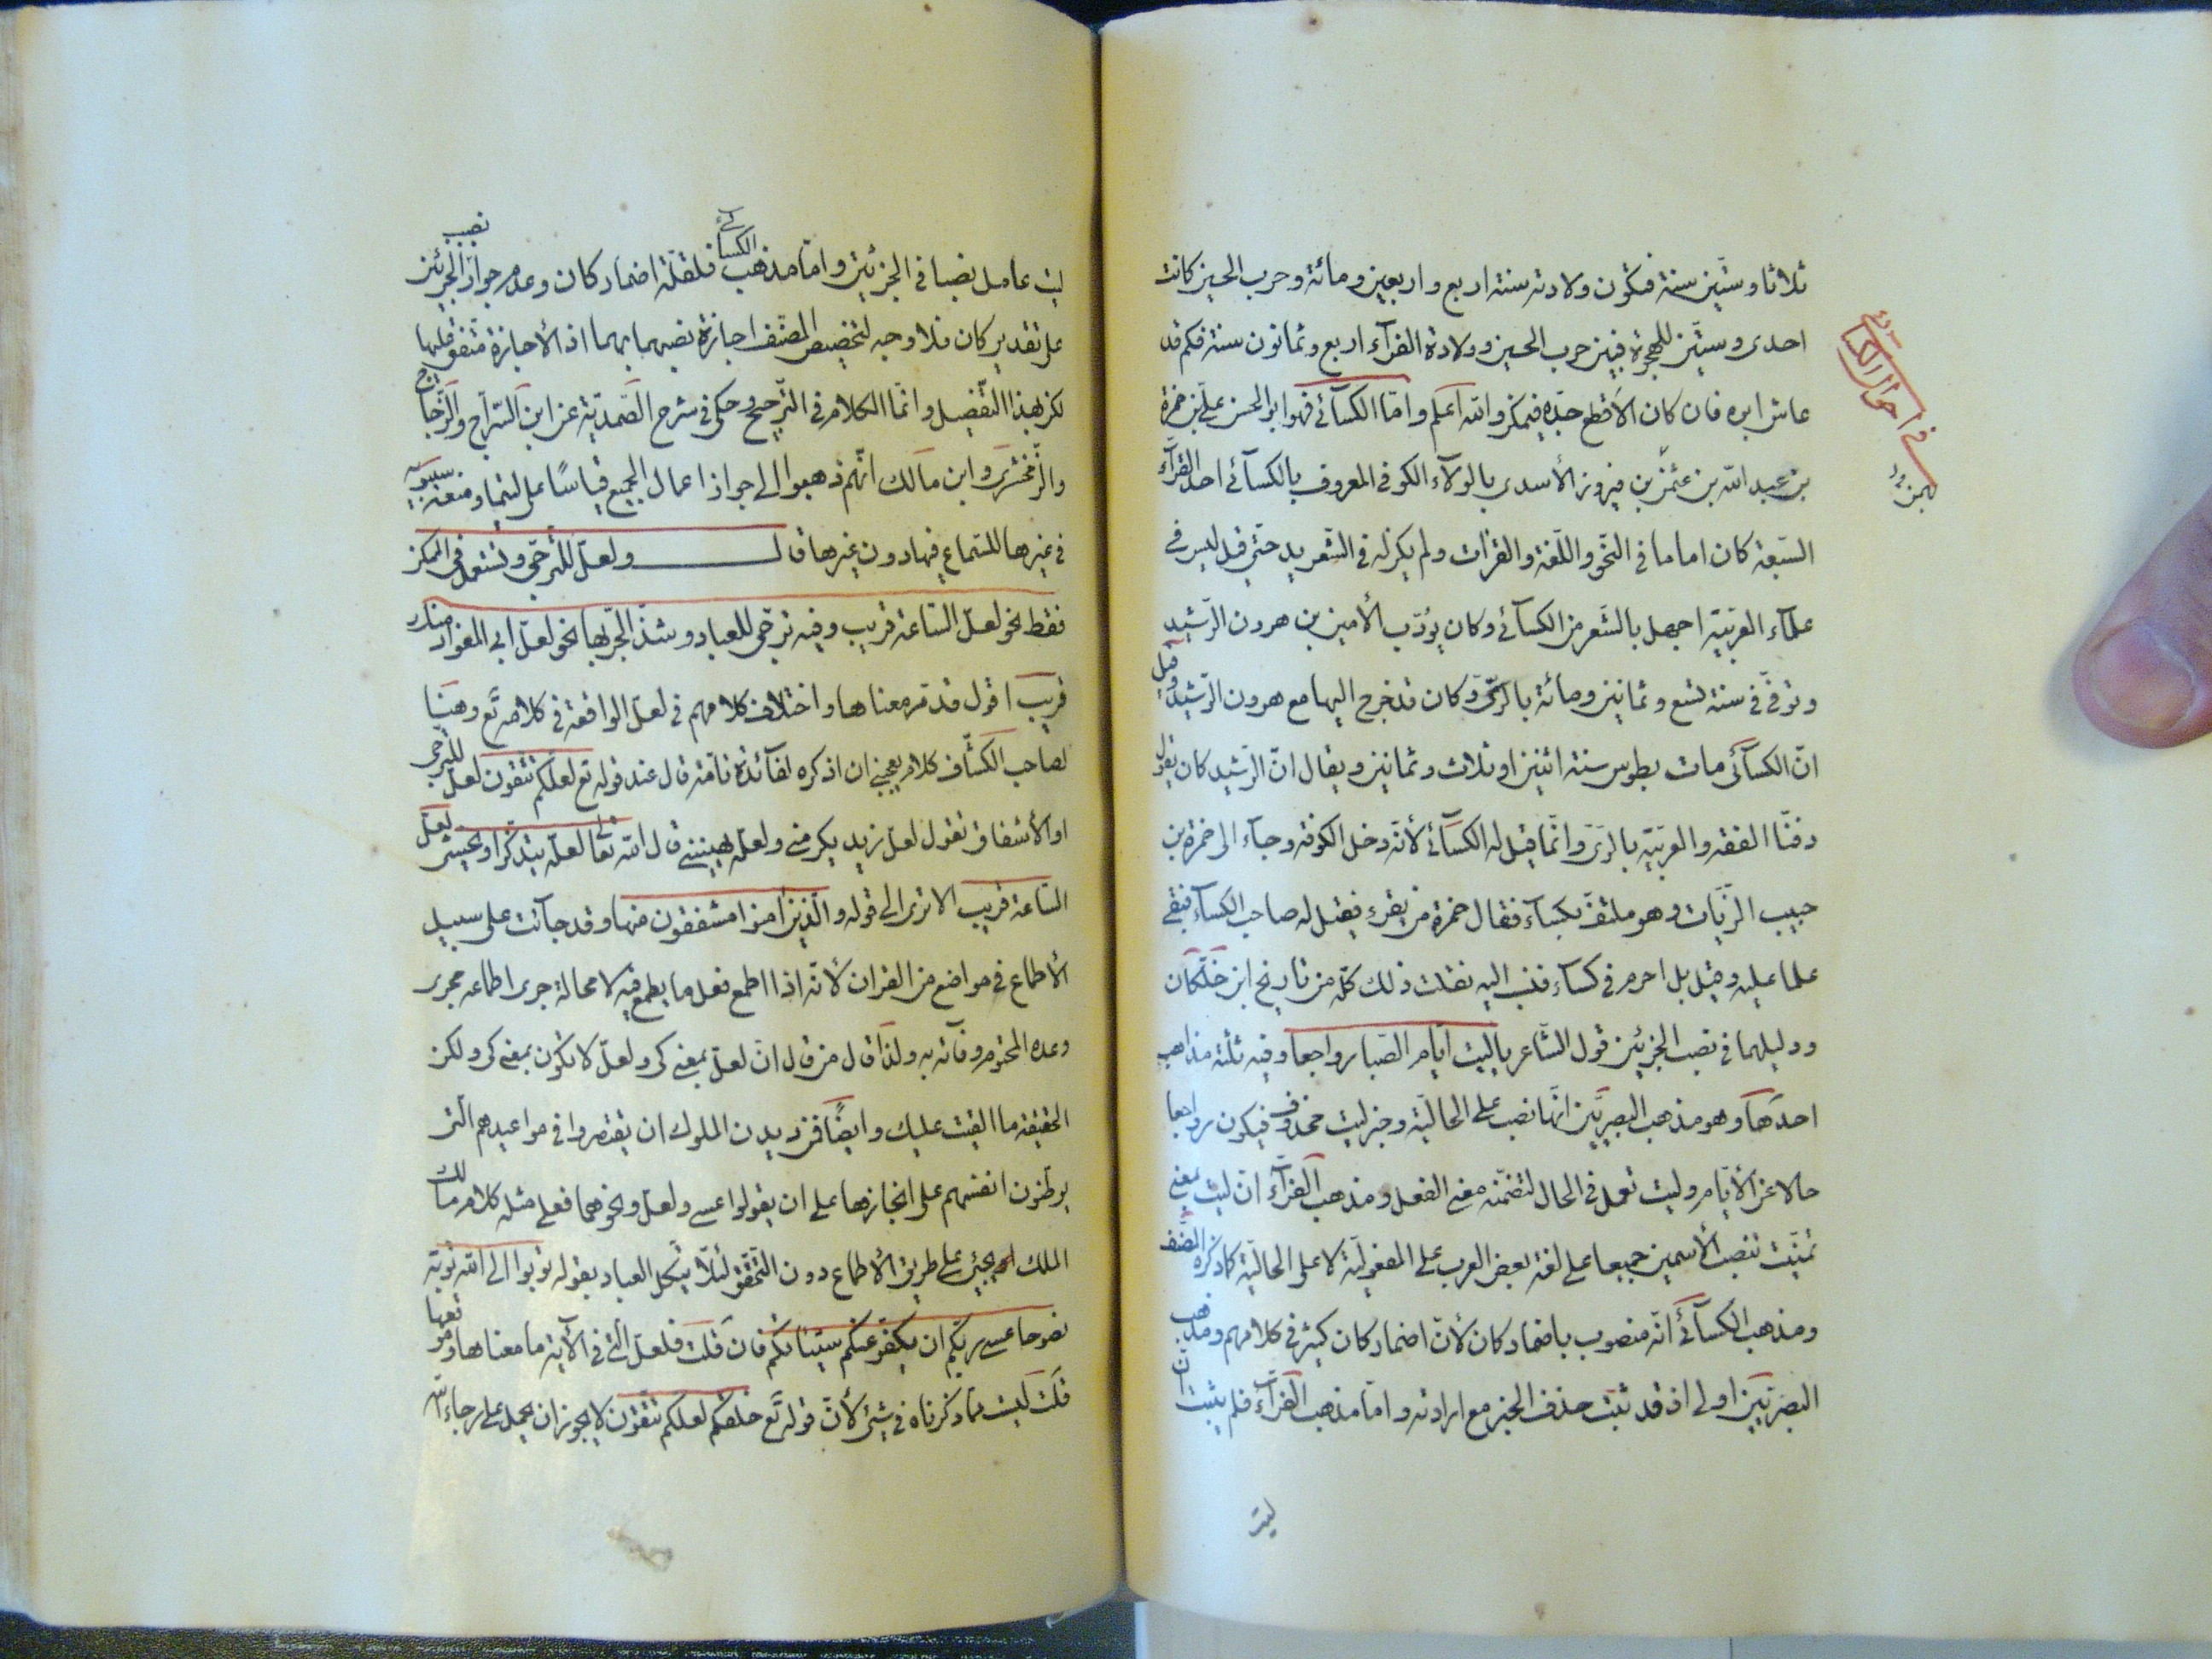 ثلاثا وستّين سنة فتكون ولادته سنة اربع واربعين ومائة وحرب الحسين كانت
احدى وستّين للهجرة فبين حرب الحسين وولادة الفرّآء اربع وثمانون سنة فكم قد
عاش ابوه فان كان الاقطع جدّه فيمكن والله اعلم وامّا الكسآئى فهو ابو الحسن علىّ بن حمزة
بن عبد الله بن عثمن بن فيروز الأسدى بالولآء الكوفى المعروف بالكسآئى احد القرّآء
السّبعة كان اماما فى النّحو واللّغة والقرآت ولم يكن له فى الشّعر يد حتّى قيل ليس فى
علمآء العربيّة اجهل بالشّعر من الكسآئى وكان يؤدّب الأمين بن هرون الرّشيد
وتوفّى فى سنة تسع وثمانين ومائة بالرّى وكان قد خرج اليها مع هرون الرّشيد وقيل
انّ الكسآئى مات بطوس سنة اثنين او ثلاث وثمانين ويقال انّ الرّشيد كان يقول
دفنّا الفقه والعربيّة بالرّى وانّما قيل له الكسآئى لأنّه دخل الكوفة وجآء الى حمزة بن
حبيب الزّيّات وهو ملتفّ بكسآء فقال حمزة من يقرء فقيل له صاحب الكسآء فبقى
علما عليه وقيل بل احرم فى كسآء فنسب اليه نقلت ذلك كلّه من تاريخ ابن خلّكان
ودليلهما فى نصب الجزئين قول الشّاعر ياليت ايّام الصّبا رواجعا وفيه ثلثة مذاهب
احدها وهو مذهب البصريّين انّها نصب على الحاليّة وخبر ليت محذوف فيكون رواجعا
حالا عن الأيّام وليت تعمل فى الحال لتضمّنه معنى الفعل ومذهب الفرّآء انّ ليت بمعنى
تمنّيت تنصب الأسمين جميعا على لغة بعض العرب على المفعوليّة لا على الحاليّة كما ذكره المصنّف
ومذهب الكسآئى انّه منصوب باضمار كان لأنّ اضمار كان كثير فى كلامهم ومذهب
البصريّين اولى اذ قد ثبت حذف الخبر مع ارادته وامّا مذهب الفرّآء فلم يثبت انّ
ليت
فى احوال الكسائى
ليت عامل نصبا فى الجزئين وامّا مذهب الكسائى فلقلّة اضمار كان وعدم جواز نصب الجزئين
على تقدير كان فلا وجه لتخصيص المصنّف اجازة نصبهما بهما اذ الأجازة متّفق عليها
لكن بهذا التّفضيل وانّما الكلام فى التّرجيح وحكى فى شرح الصّمديّة عن ابن السّراج والزّجّاج
والزّمخشرى وابن مالك انّهم ذهبوا الى جواز اعمال الجميع قياسًا على ليتما ومنعه سيبويه
فى غيرها للسّماع فيها دون غيرها قال ولعلّ للترجّى وتستعمل فى الممكن
فقط نحو لعلّ السّاعة قريب وفيه ترجّى للعباد وشذّ الجرّ بها نحو لعلّ ابى المغوار منك
قريب اقول قد مرّ معناها واختلاف كلامهم فى لعلّ الواقعة فى كلامه تع وهنا
لصاحب الكشّاف كلام يعجبنى ان اذكره لفآئدة تامّة قال عند قوله تع لعلكم تتقون لعلّ للترجى
او الأشفاق تقول لعلّ زيد يكرمنى ولعلّه يهيننى قال الله تعالى لعلّه يتذكّر او يخشى لعلّ
السّاعة قريب الا ترى الى قوله والّذين امنوا مشفقون منها وقد جآئت على سبيل
الأطماع فى مواضع من القران لأنّه اذا اطمع فعل ما يطمع فيه لا محالة جرى اطماعه مجرى
وعده المحتوم وفآئه به ولذا قال من قال انّ لعلّ بمعنى كى ولعلّ لا يكون بمعنى كى ولكن
الحقيقة ما القيت عليك وايضًا فمن ديدن الملوك ان يقتصروا فى مواعيدهم الّتى
يوطّنون انفسهم على انجازها على ان يقولوا عسى ولعلّ ونحوهما فعلى مثله كلام مالك
الملك او يجئ على طريق الأطماع دون التّحقّق لئلّا يتّكل العباد بقوله توبوا الى الله توبة
نصوحا عسى ربّكم ان يكفّر عنكم سيّئاتكم فان قلت فلعلّ الّتى فى الآية ما معناها وموقعها
قلت ليست ممّا ذكرناه فى شئ لأنّ قوله تع خلقكم لعلكم تتقون لا يجوز ان يحمل على رجاء الله